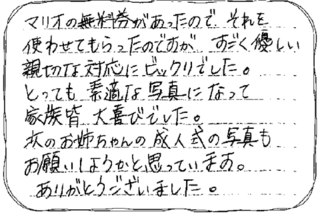 マリオの無料券があったので それを
使わせてもらったのですが、すごく優しい
親切な対応にビックリでした。
とっても 素適な写真になって
家族皆 大喜びでした。
次のお姉ちゃんの成人式の写真も
お願いしようかと思っています。
ありがとうございました。